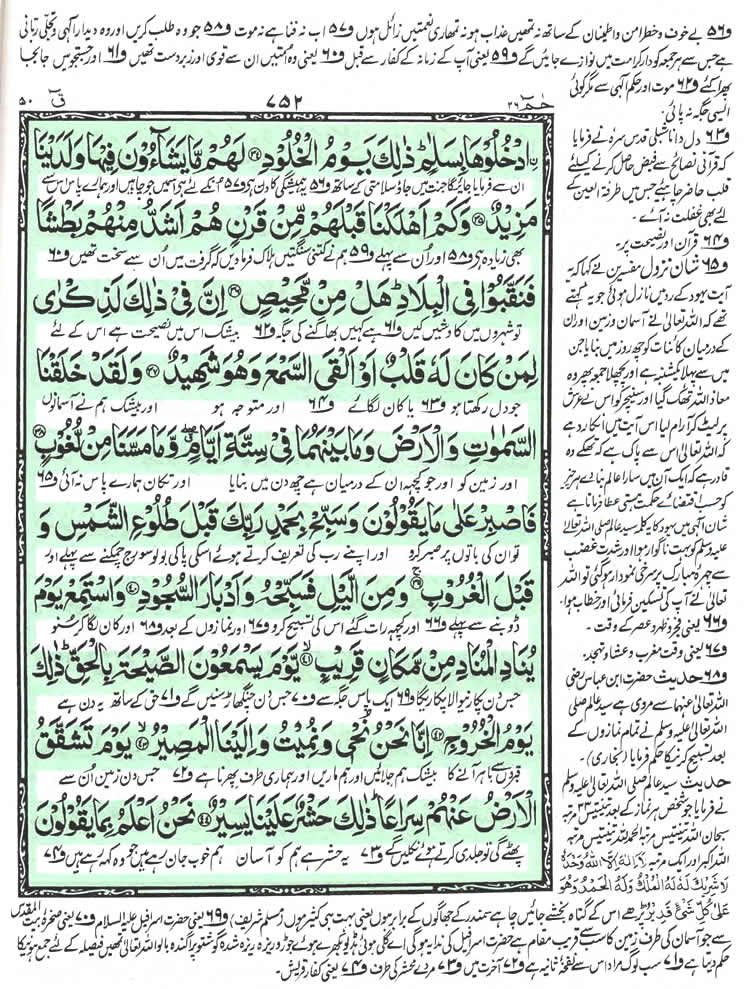 و۵۶ بے خوف و خطر امن و اطمینان کے ساتھ نہ تمھیں عذاب ہو نہ تمھاری نعمتیں زائل ہوں و۵۷ اب نہ فنا ہے نہ موت و۵۸ جو وہ طلب کریں اور وہ دیدارِ الٰہی و تجلّی ربانی
ہے جس سے ہر جمعہ کو دارِ کرامت میں نوازے جائیں گے و۵۹ یعنی آپ کے زمانہ کے کفار سے قبل و۶۰ یعنی وہ امتیں ان سے قوی اور زبردست تھیں و۶۱ اور جستجو میں جابجا
پھرا کئے و۶۲ موت اور حکم الٰہی سے مگر کوئی
ایسی جگہ نہ پائی۔
و۶۳ دل دانا شبلی قدس سرہ نے فرمایا
کہ قرآنی نصائح سے فیض حاصل کرنے کیلئے
قلب حاضر چاہئے جس میں طرفۃ العین کے
لئے بھی غفلت نہ آئے۔
و۶۴ قرآن اور نصیحت پر۔
و۶۵ شان نزول مفسرین نے کہا کہ یہ
آیت یہود کے رد میں نازل ہوئی جو یہ کہتے
تھے کہ اللہ تعالٰی نے آسمان و زمین اور ان
کے درمیان کائنات کو چھ روز میں بنایا جن
میں سے پہلا یکشنبہ ہے اور پچھلا جمعہ پھر وہ
معاذ اللہ تھک گیا اور سنیچر کو اس نے عرش
پر لیٹ کر آرام لیا اس آیت میں اسکا رد ہے
کہ اللہ تعالٰی اس سے پاک ہے کہ تھکے وہ
قادر ہے کہ ایک آن میں سارا عالم بنا دے ہر چیز
کو حسب اقتضائے حکمت ہستی عطا فرماتا ہے
شان الٰہی میں یہود کا یہ کلمہ سید عالم صلی اللہ تعالٰی
علیہ وسلم کو بہت ناگوار ہوا اور شدت غضب
سے چہرہ مبارک پر سرخی نمودار ہو گئی تو اللہ
تعالٰی نے آپ کی تسکین فرمائی اور خطاب ہوا۔
و۶۶ یعنی فجر و ظہر و عصر کے وقت۔
و۶۷ یعنی وقت مغرب و عشا و تہجد۔
و۶۸ حدیث حضرت ابن عباس رضی
اللہ تعالٰی عنہما سے مروی ہے سید عالم صلی
اللہ تعالٰی علیہ وسلم نے تمام نمازوں کے
بعد تسبیح کرنیکا حکم فرمایا (بخاری)۔
حدیث سید عالم صلی اللہ تعالٰی علیہ وسلم
نے فرمایا جو شخص ہر نماز کے بعد تینتیس ۳۳ مرتبہ
سبحان اللہ تینتیس مرتبہ الحمد للہ تینتیس مرتبہ
اللہ اکبر اور ایک مرتبہ لَا اِلٰهَ اِلَّا اللّٰهُ وَحْدَهٗ
لَا شَرِيْكَ لَهٗ لَهُ الْمُلْكُ وَلَهُ الْحَمْدُ وَهُوَ
حٰمٓ ۲۶
۷۵۲
قٓ ۵۰
ادْخُلُوْهَا بِسَلٰمٍ ؕ ذٰلِكَ يَوْمُ الْخُلُوْدِ ۳۴ لَهُمْ مَّا يَشَآءُوْنَ فِيْهَا وَلَدَيْنَا
ان سے فرمایا جائیگا جنت میں جاؤ سلامتی کے ساتھ و۵۶ یہ ہمیشگی کا دن ہے و۵۷ انکے لئے ہے اس میں جو چاہیں اور ہمارے پاس اس سے
مَزِيْدٌ ۳۵ وَكَمْ اَهْلَكْنَا قَبْلَهُمْ مِّنْ قَرْنٍ هُمْ اَشَدُّ مِنْهُمْ بَطْشًا
بھی زیادہ ہے و۵۸ اور اُن سے پہلے و۵۹ ہم نے کتنی سنگتیں ہلاک فرما دیں کہ گرفت میں اُن سے سخت تھیں و۶۰
فَنَقَّبُوْا فِي الْبِلَادِ ؕ هَلْ مِنْ مَّحِيْصٍ ۳۶ اِنَّ فِيْ ذٰلِكَ لَذِكْرٰى
تو شہروں میں کاوشیں کیں و۶۱ ہے کہیں بھاگنے کی جگہ و۶۲ بیشک اس میں نصیحت ہے اس کے لئے
لِمَنْ كَانَ لَهٗ قَلْبٌ اَوْ اَلْقَى السَّمْعَ وَهُوَ شَهِيْدٌ ۳۷ وَلَقَدْ خَلَقْنَا
جو دل رکھتا ہو و۶۳ یا کان لگائے و۶۴ اور متوجہ ہو اور بیشک ہم نے آسمانوں
السَّمٰوٰتِ وَالْاَرْضَ وَمَا بَيْنَهُمَا فِيْ سِتَّةِ اَيَّامٍ وَّمَا مَسَّنَا مِنْ لُّغُوْبٍ ۳۸
اور زمین کو اور جو کچھ ان کے درمیان ہے چھ دن میں بنایا اور تکان ہمارے پاس نہ آئی و۶۵
فَاصْبِرْ عَلٰى مَا يَقُوْلُوْنَ وَسَبِّحْ بِحَمْدِ رَبِّكَ قَبْلَ طُلُوْعِ الشَّمْسِ وَ
تو ان کی باتوں پر صبر کرو اور اپنے رب کی تعریف کرتے ہوئے اسکی پاکی بولو سورج چمکنے سے پہلے اور
قَبْلَ الْغُرُوْبِ ۳۹ وَمِنَ الَّيْلِ فَسَبِّحْهُ وَاَدْبَارَ السُّجُوْدِ ۴۰ وَاسْتَمِعْ يَوْمَ
ڈوبنے سے پہلے و۶۶ اور کچھ رات گئے اس کی تسبیح کرو و۶۷ اور نمازوں کے بعد و۶۸ اور کان لگا کر سنو
يُنَادِ الْمُنَادِ مِنْ مَّكَانٍ قَرِيْبٍ ۴۱ يَّوْمَ يَسْمَعُوْنَ الصَّيْحَةَ بِالْحَقِّ ؕ ذٰلِكَ
جس دن پکارنے والا پکاریگا و۶۹ ایک پاس جگہ سے و۷۰ جس دن چنگھاڑ سنیں گے و۷۱ حق کے ساتھ یہ دن ہے
يَوْمُ الْخُرُوْجِ ۴۲ اِنَّا نَحْنُ نُحْيٖ وَنُمِيْتُ وَاِلَيْنَا الْمَصِيْرُ ۴۳ يَوْمَ تَشَقَّقُ
قبروں سے باہر آنے کا بیشک ہم جلائیں اور ہم ماریں اور ہماری طرف پھرنا ہے و۷۲ جس دن زمین اُن سے
الْاَرْضُ عَنْهُمْ سِرَاعًا ؕ ذٰلِكَ حَشْرٌ عَلَيْنَا يَسِيْرٌ ۴۴ نَحْنُ اَعْلَمُ بِمَا يَقُوْلُوْنَ
پھٹے گی تو جلدی کرتے ہوئے نکلیں گے و۷۳ یہ حشر ہے ہم کو آسان ہم خوب جان رہے ہیں جو وہ کہہ رہے ہیں و۷۴
عَلٰى كُلِّ شَيْءٍ قَدِيْرٌ پڑھے اس کے گناہ بخشے جائیں چاہے سمندر کے جھاگوں کے برابر ہوں یعنی بہت ہی کثیر ہوں (مسلم شریف) و۶۹ یعنی حضرت اسرافیل علیہ السلام و۷۰ یعنی صخرۂ بیت المقدس
سے جو آسمان کی طرف زمین کا سب سے قریب مقام ہے حضرت اسرافیل کی ندا یہ ہوگی اے گلی ہوئی ہڈیو بکھرے ہوئے جوڑو ریزہ ریزہ شدہ گوشتو پراگندہ بالو اللہ تعالٰی تمھیں فیصلہ کے لئے جمع ہونیکا
حکم دیتا ہے و۷۱ سب لوگ مراد اس سے نفخۂ ثانیہ ہے و۷۲ آخرت میں و۷۳ مردے محشر کی طرف و۷۴ یعنی کفار قریش۔